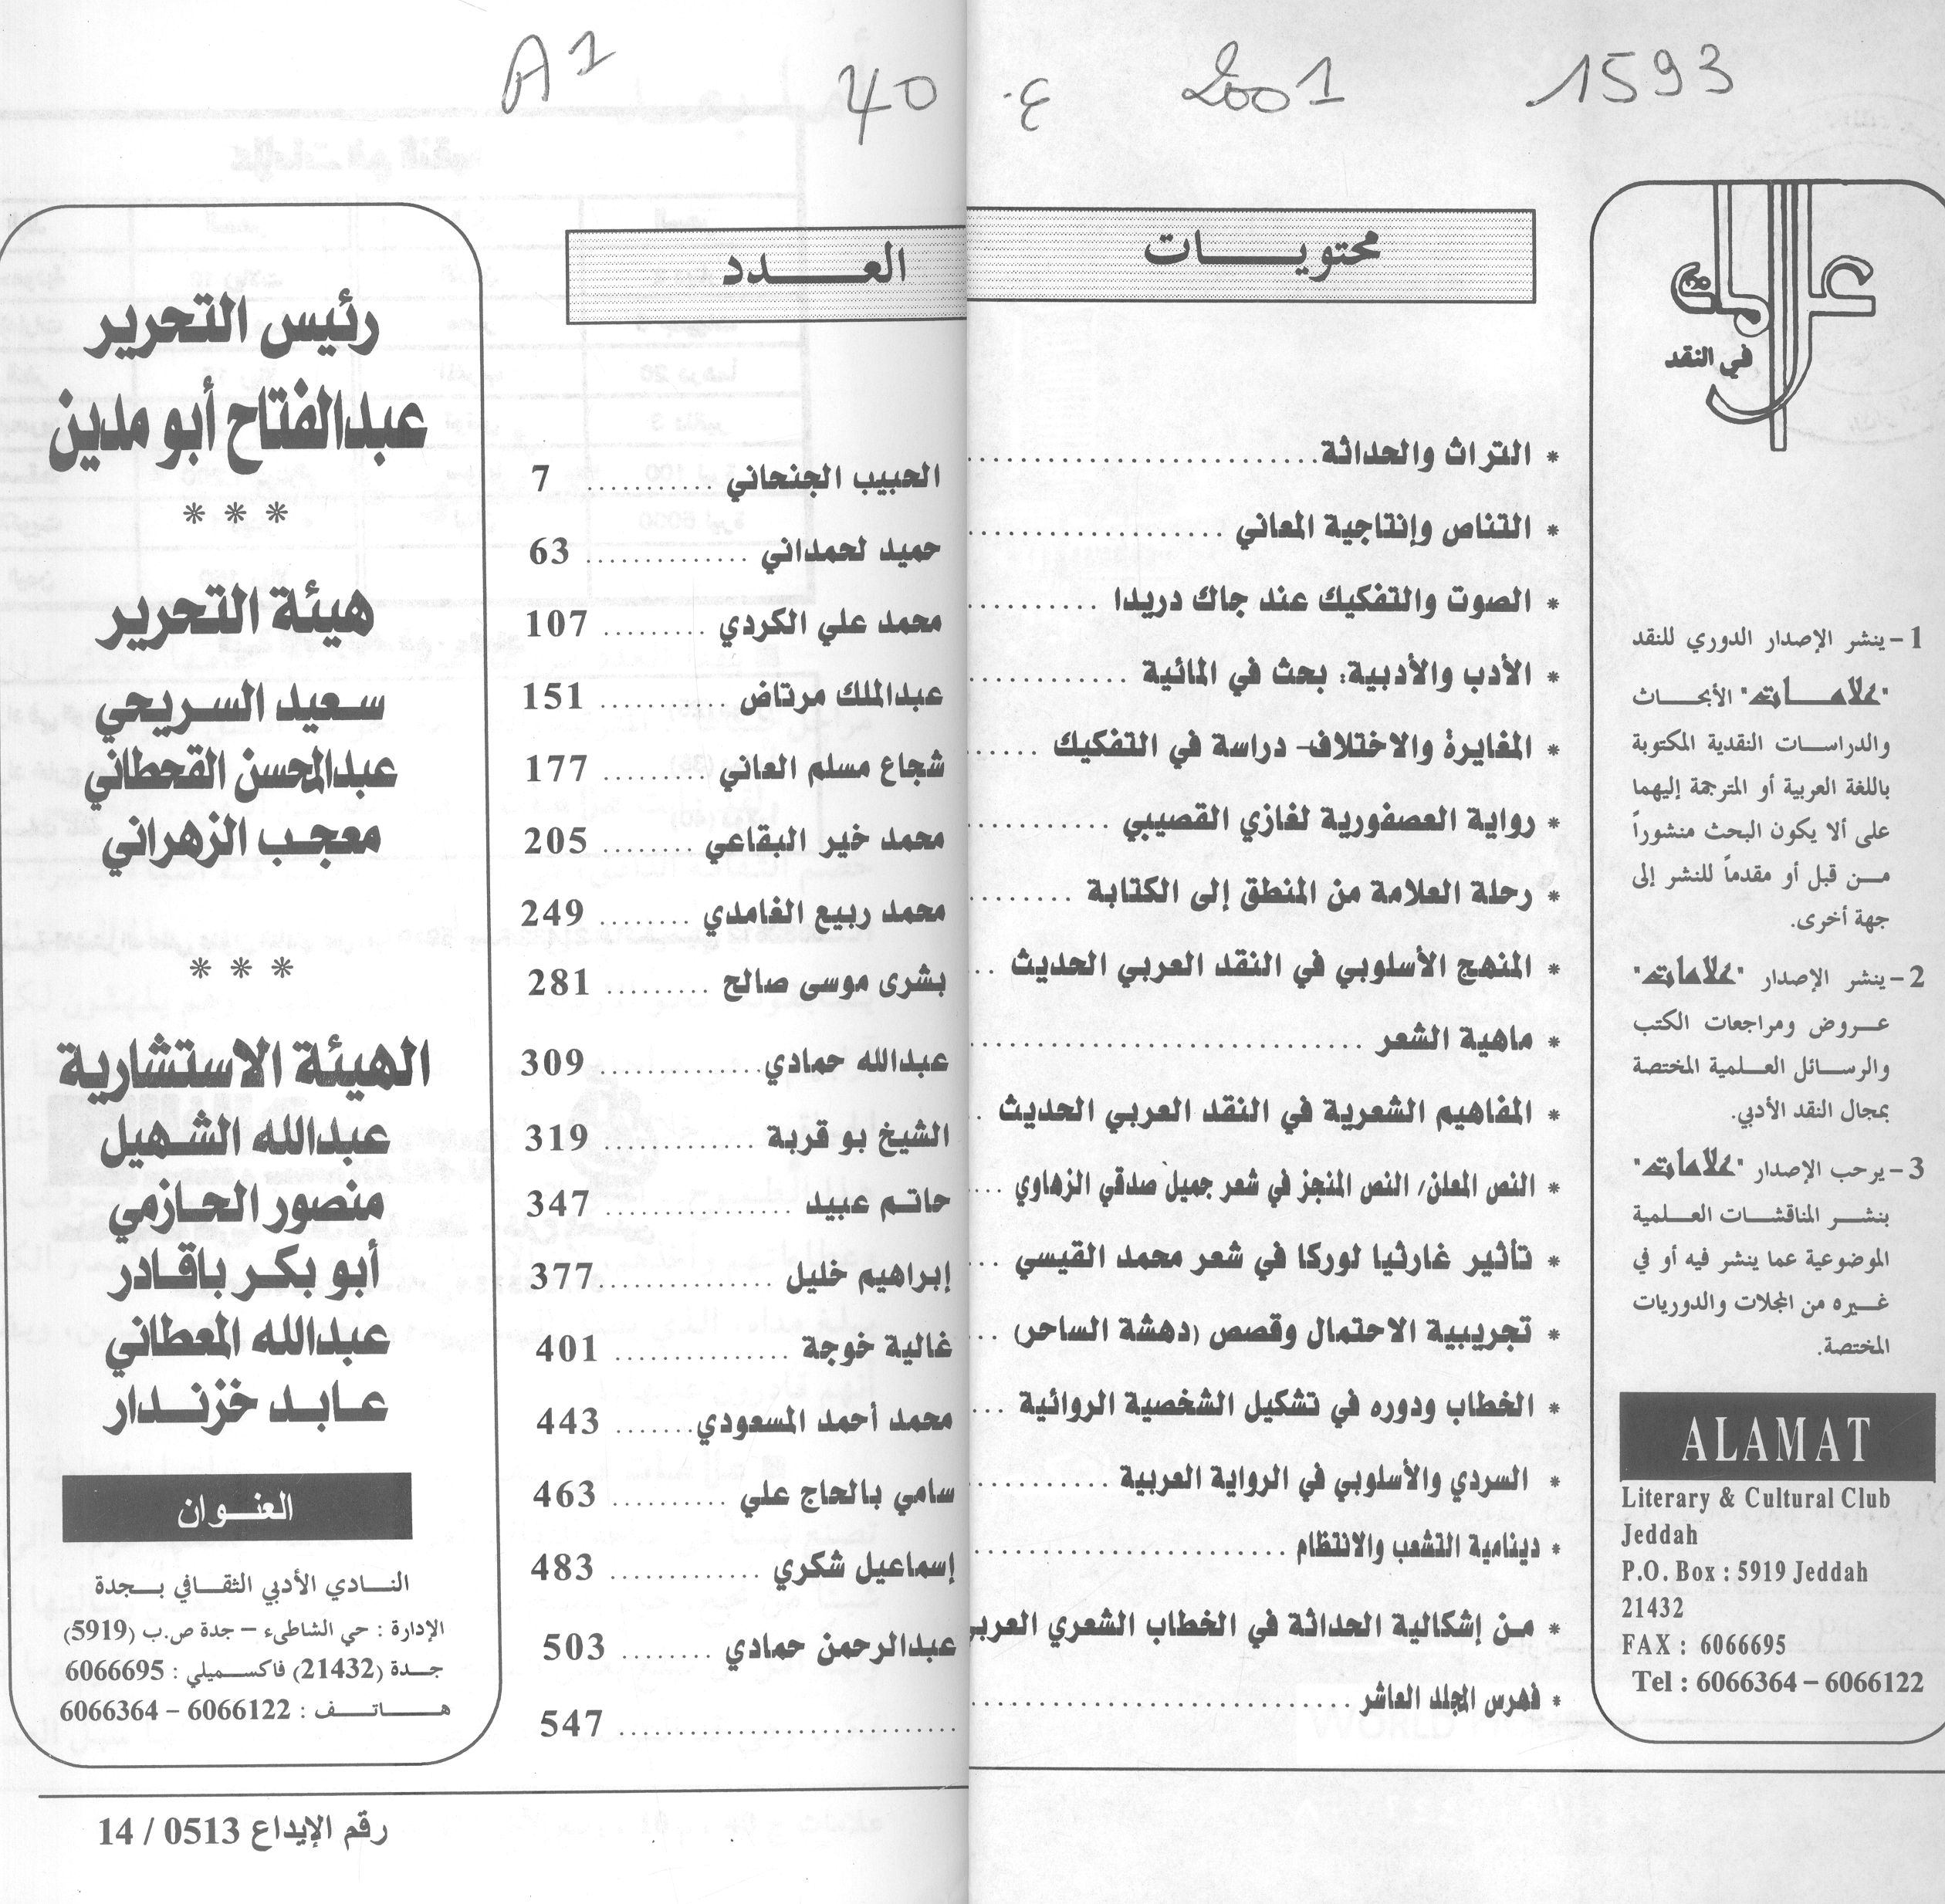 1593
2001
ع. 40
A1
علامات
في النقد
1 - ينشر الإصدار الدوري للنقد
"علامات" الأبحاث
والدراسات النقدية المكتوبة
باللغة العربية أو المترجمة إليهما
على ألا يكون البحث منشوراً
من قبل أو مقدماً للنشر إلى
جهة أخرى.
2 - ينشر الإصدار "علامات"
عروض ومراجعات الكتب
والرسائل العلمية المختصة
بمجال النقد الأدبي.
3 - يرحب الإصدار "علامات"
بنشر المناقشات العلمية
الموضوعية عما ينشر فيه أو في
غيره من المجلات والدوريات
المختصة.
ALAMAT
Literary & Cultural Club
Jeddah
P.O. Box : 5919 Jeddah
21432
FAX : 6066695
Tel : 6066364 – 6066122
محتويات العدد
* التراث والحداثة ........ الحبيب الجنحاني ........ 7
* التناص وإنتاجية المعاني ........ حميد لحمداني ........ 63
* الصوت والتفكيك عند جاك دريدا ........ محمد علي الكردي ........ 107
* الأدب والأدبية: بحث في المائية ........ عبدالملك مرتاض ........ 151
* المغايرة والاختلاف- دراسة في التفكيك ........ شجاع مسلم العاني ........ 177
* رواية العصفورية لغازي القصيبي ........ محمد خير البقاعي ........ 205
* رحلة العلامة من المنطق إلى الكتابة ........ محمد ربيع الغامدي ........ 249
* المنهج الأسلوبي في النقد العربي الحديث ........ بشرى موسى صالح ........ 281
* ماهية الشعر ........ عبدالله حمادي ........ 309
* المفاهيم الشعرية في النقد العربي الحديث ........ الشيخ بو قربة ........ 319
* النص المعلن/ النص المنجز في شعر جميل صدقي الزهاوي ........ حاتم عبيد ........ 347
* تأثير غارثيا لوركا في شعر محمد القيسي ........ إبراهيم خليل ........ 377
* تجريبية الاحتمال وقصص (دهشة الساحر) ........ غالية خوجة ........ 401
* الخطاب ودوره في تشكيل الشخصية الروائية ........ محمد أحمد المسعودي ........ 443
* السردي والأسلوبي في الرواية العربية ........ سامي بالحاج علي ........ 463
* دينامية التشعب والانتظام ........ إسماعيل شكري ........ 483
* من إشكالية الحداثة في الخطاب الشعري العربي ........ عبدالرحمن حمادي ........ 503
* فهرس المجلد العاشر ........ 547
رئيس التحرير
عبدالفتاح أبو مدين
* * *
هيئة التحرير
سعيد السريحي
عبدالمحسن القحطاني
معجب الزهراني
* * *
الهيئة الاستشارية
عبدالله الشهيل
منصور الحازمي
أبو بكر باقادر
عبدالله المعطاني
عابد خزندار
العنوان
النادي الأدبي الثقافي بجدة
الإدارة : حي الشاطىء – جدة ص.ب (5919)
جدة (21432) فاكسميلي : 6066695
هاتف : 6066122 – 6066364
رقم الإيداع 0513 / 14